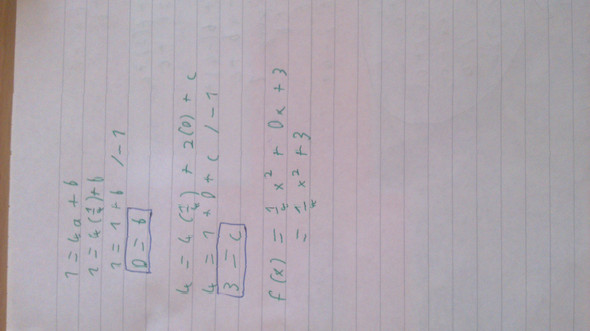 1 = 4a + b
1 = 4(1/4) + b
1 = 1 + b / -1
0 = b
4 = 4(1/4) + 2(0) + c
4 = 1 + 0 + c / -1
3 = c
f(x) = 1/4 x² + 0x + 3
= 1/4 x² + 3